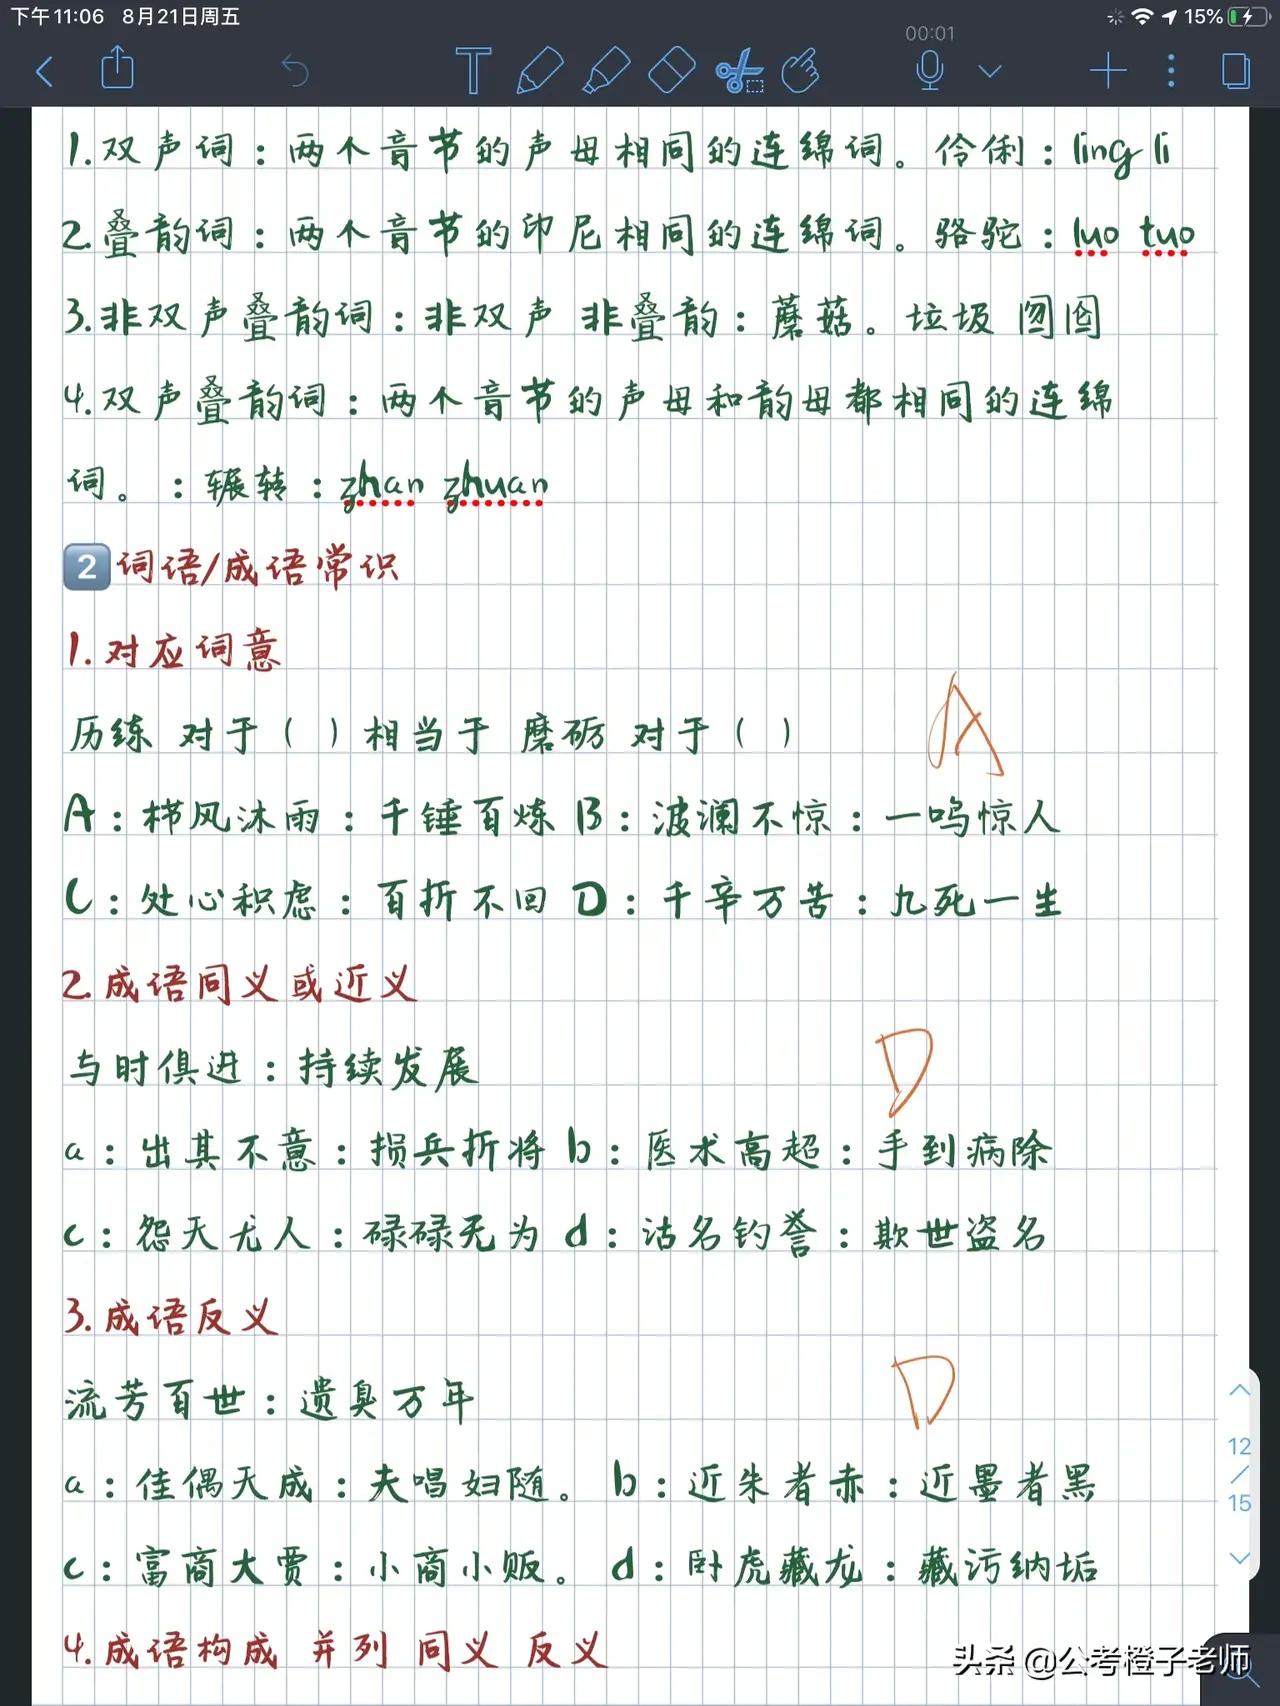 下午11:06 8月21日周五
15%
00:01
1.双声词：两个音节的声母相同的连绵词。伶俐：ling li
2.叠韵词：两个音节的印尼相同的连绵词。骆驼：luo tuo
3.非双声叠韵词：非双声 非叠韵：蘑菇。垃圾 囫囵
4.双声叠韵词：两个音节的声母和韵母都相同的连绵
词。：辗转：zhan zhuan
2 词语/成语常识
1.对应词意
历练 对于（ ）相当于 磨砺 对于（ ）
A
A：栉风沐雨：千锤百炼 B：波澜不惊：一鸣惊人
C：处心积虑：百折不回 D：千辛万苦：九死一生
2.成语同义或近义
与时俱进：持续发展
D
a：出其不意：损兵折将 b：医术高超：手到病除
c：怨天尤人：碌碌无为 d：沽名钓誉：欺世盗名
3.成语反义
流芳百世：遗臭万年
D
a：佳偶天成：夫唱妇随。 b：近朱者赤：近墨者黑
c：富商大贾：小商小贩。 d：卧虎藏龙：藏污纳垢
12
/
15
4.成语构成 并列 同义 反义
头条 @公考橙子老师